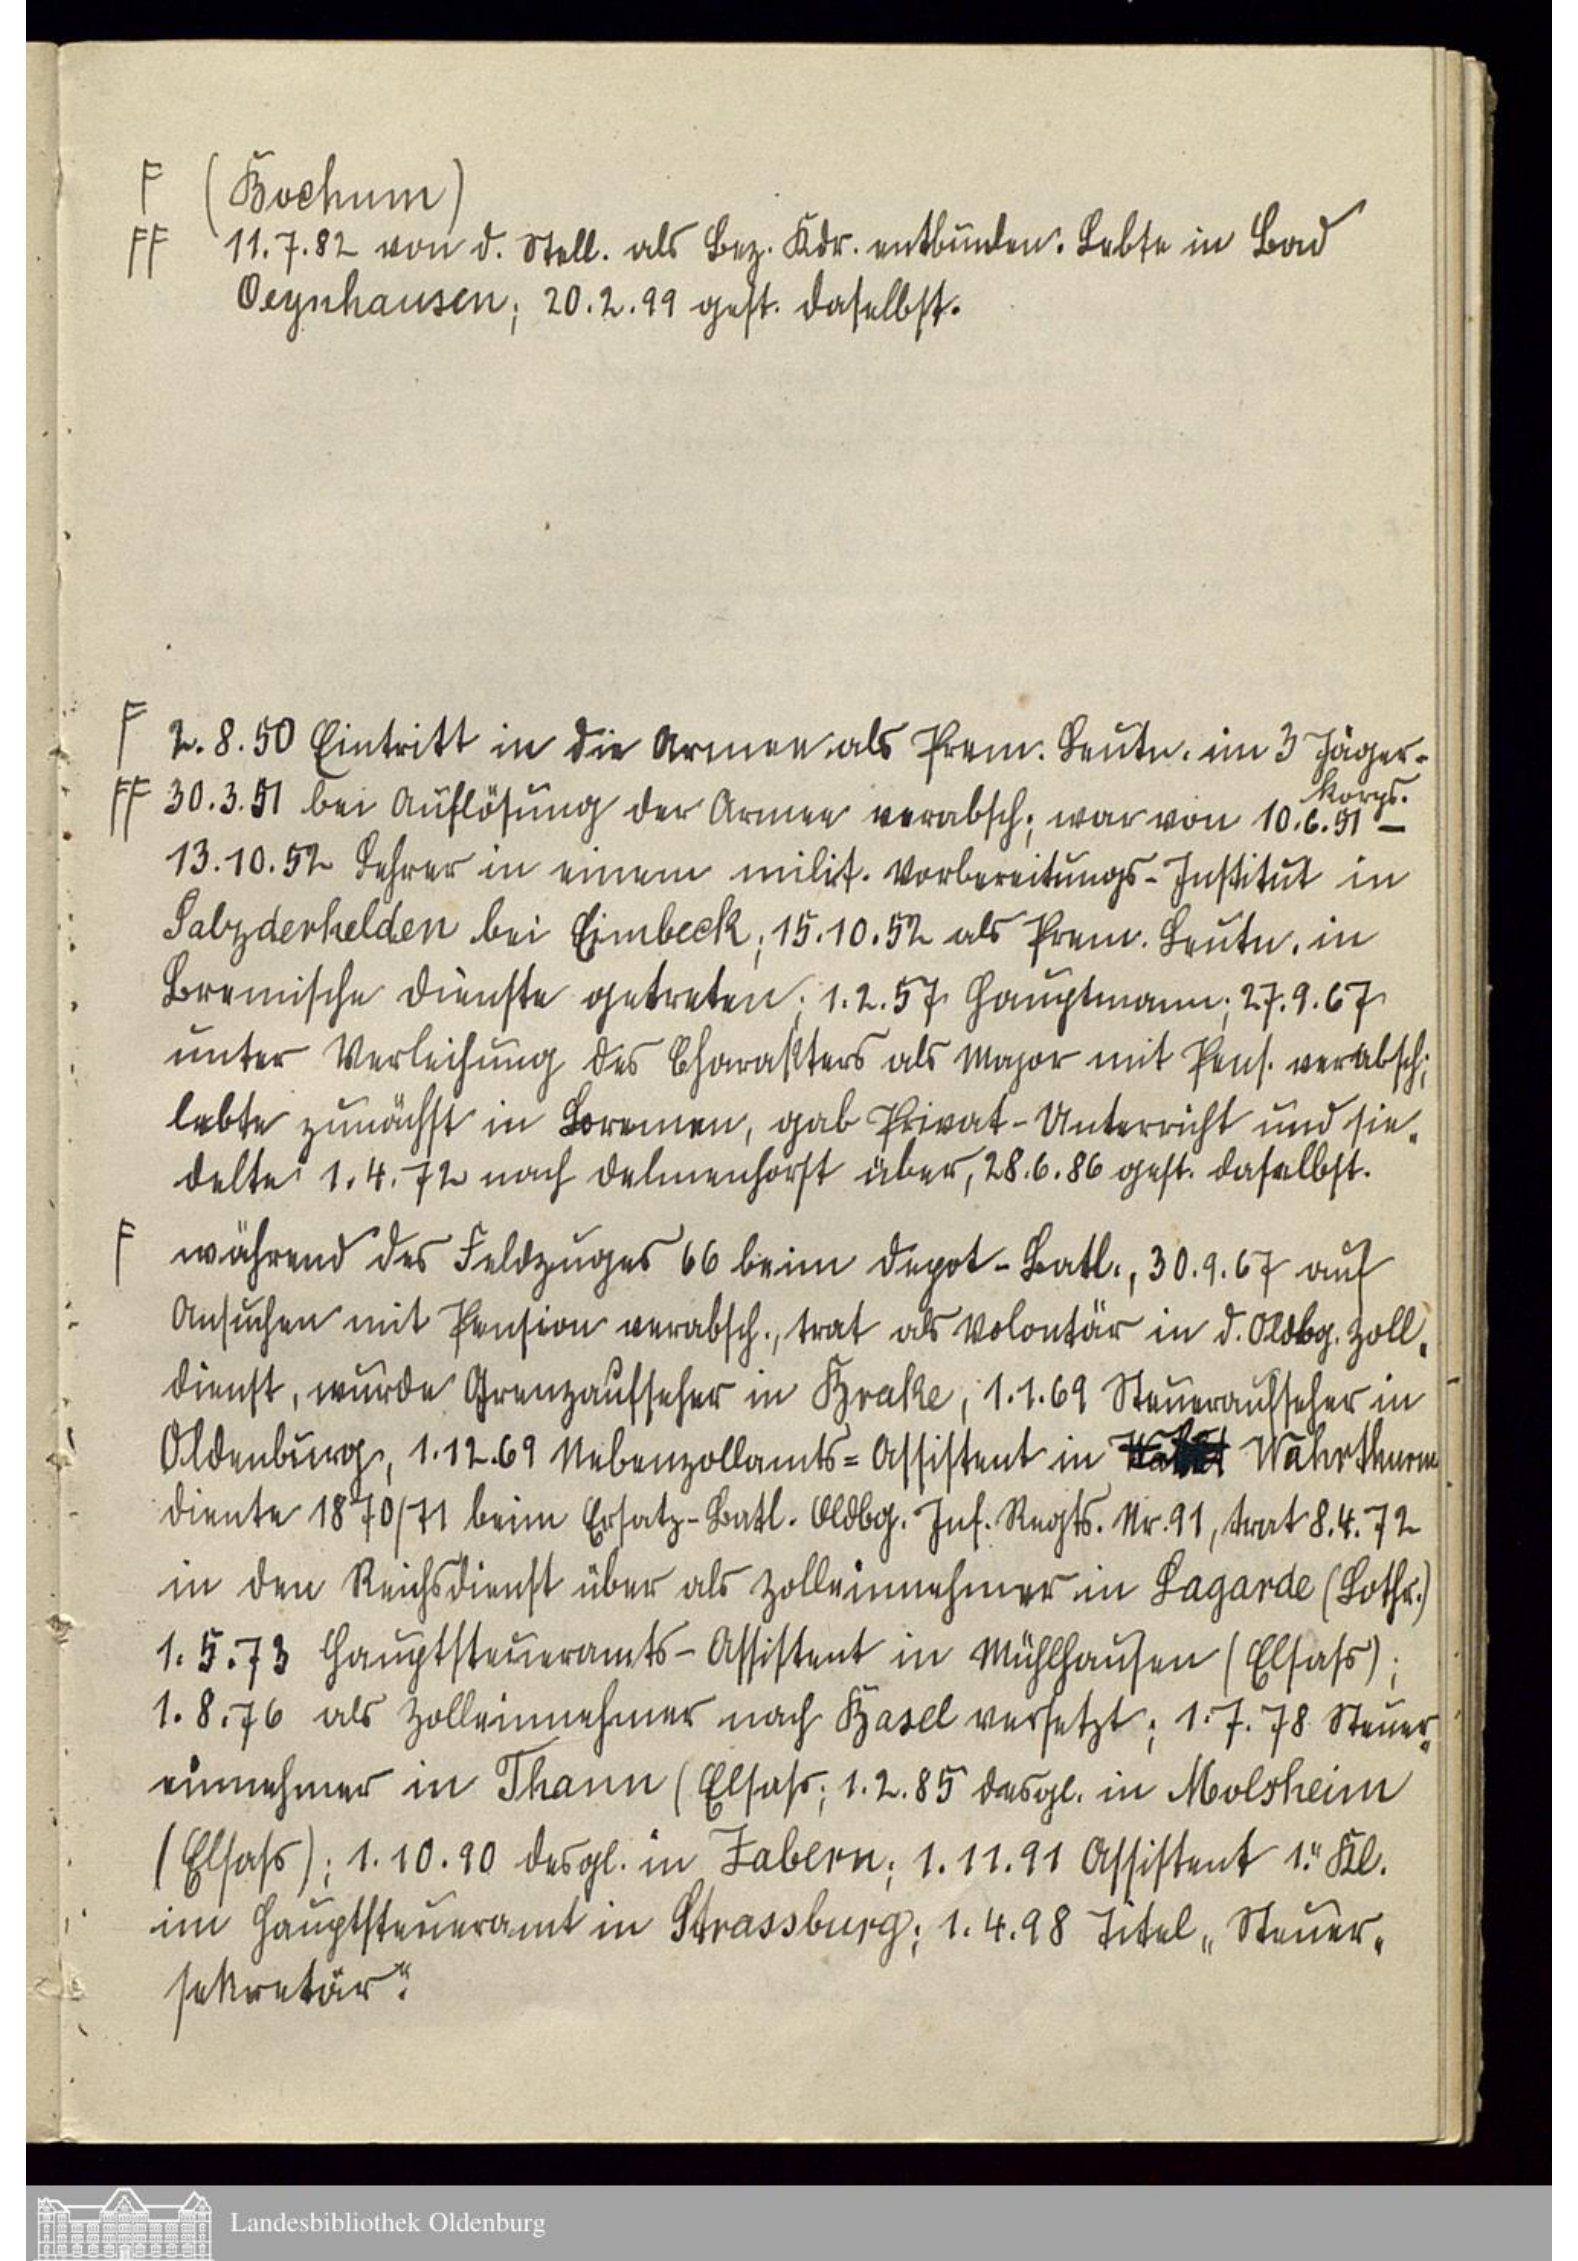 F (Bochum)
FF 11.7.82 von d. Stell. als Bez. Kdr. entbunden. Lebte in Bad
Oeynhausen; 20.2.99 gest. daselbst.
F 2.8.50 Eintritt in die Armee als Prem. Leutn. im 3 Jäger-
Korps.
FF 30.3.51 bei Auflösung der Armee verabsch; war von 10.6.51 –
13.10.52 Lehrer in einem milit. Vorbereitungs-Institut in
Salzderhelden bei Eimbeck; 15.10.52 als Prem. Leutn. in
Bremische Dienste getreten; 1.2.57 Hauptmann; 27.9.67
unter Verleihung des Charakters als Major mit Pens. verabsch;
lebte zunächst in Bremen, gab Privat-Unterricht und sie-
delte 1.4.72 nach Delmenhorst über, 28.6.86 gest. daselbst.
F während des Feldzuges 66 beim Depot-Batl., 30.9.67 auf
Ansuchen mit Pension verabsch., trat als Volontär in d. Oldbg. Zoll-
dienst, wurde Grenzaufseher in Brake, 1.1.69 Steueraufseher in
Oldenburg, 1.12.69 Nebenzollamts=Assistent in Wahrthurm
diente 1870/71 beim Ersatz-Batl. Oldbg. Inf. Regts. Nr. 91, trat 8.4.72
in den Reichsdienst über als Zolleinnehmer in Lagarde (Lothr.)
1.5.73 Hauptsteueramts-Assistent in Mühlhausen (Elsass);
1.8.76 als Zolleinnehmer nach Basel versetzt; 1.7.78 Steuer-
einnehmer in Thann (Elsass; 1.2.85 desgl. in Molsheim
(Elsass); 1.10.90 desgl. in Zabern; 1.11.91 Assistent 1." Kl.
im Hauptsteueramt in Strassburg; 1.4.98 Titel „Steuer-
sekretär".
Landesbibliothek Oldenburg